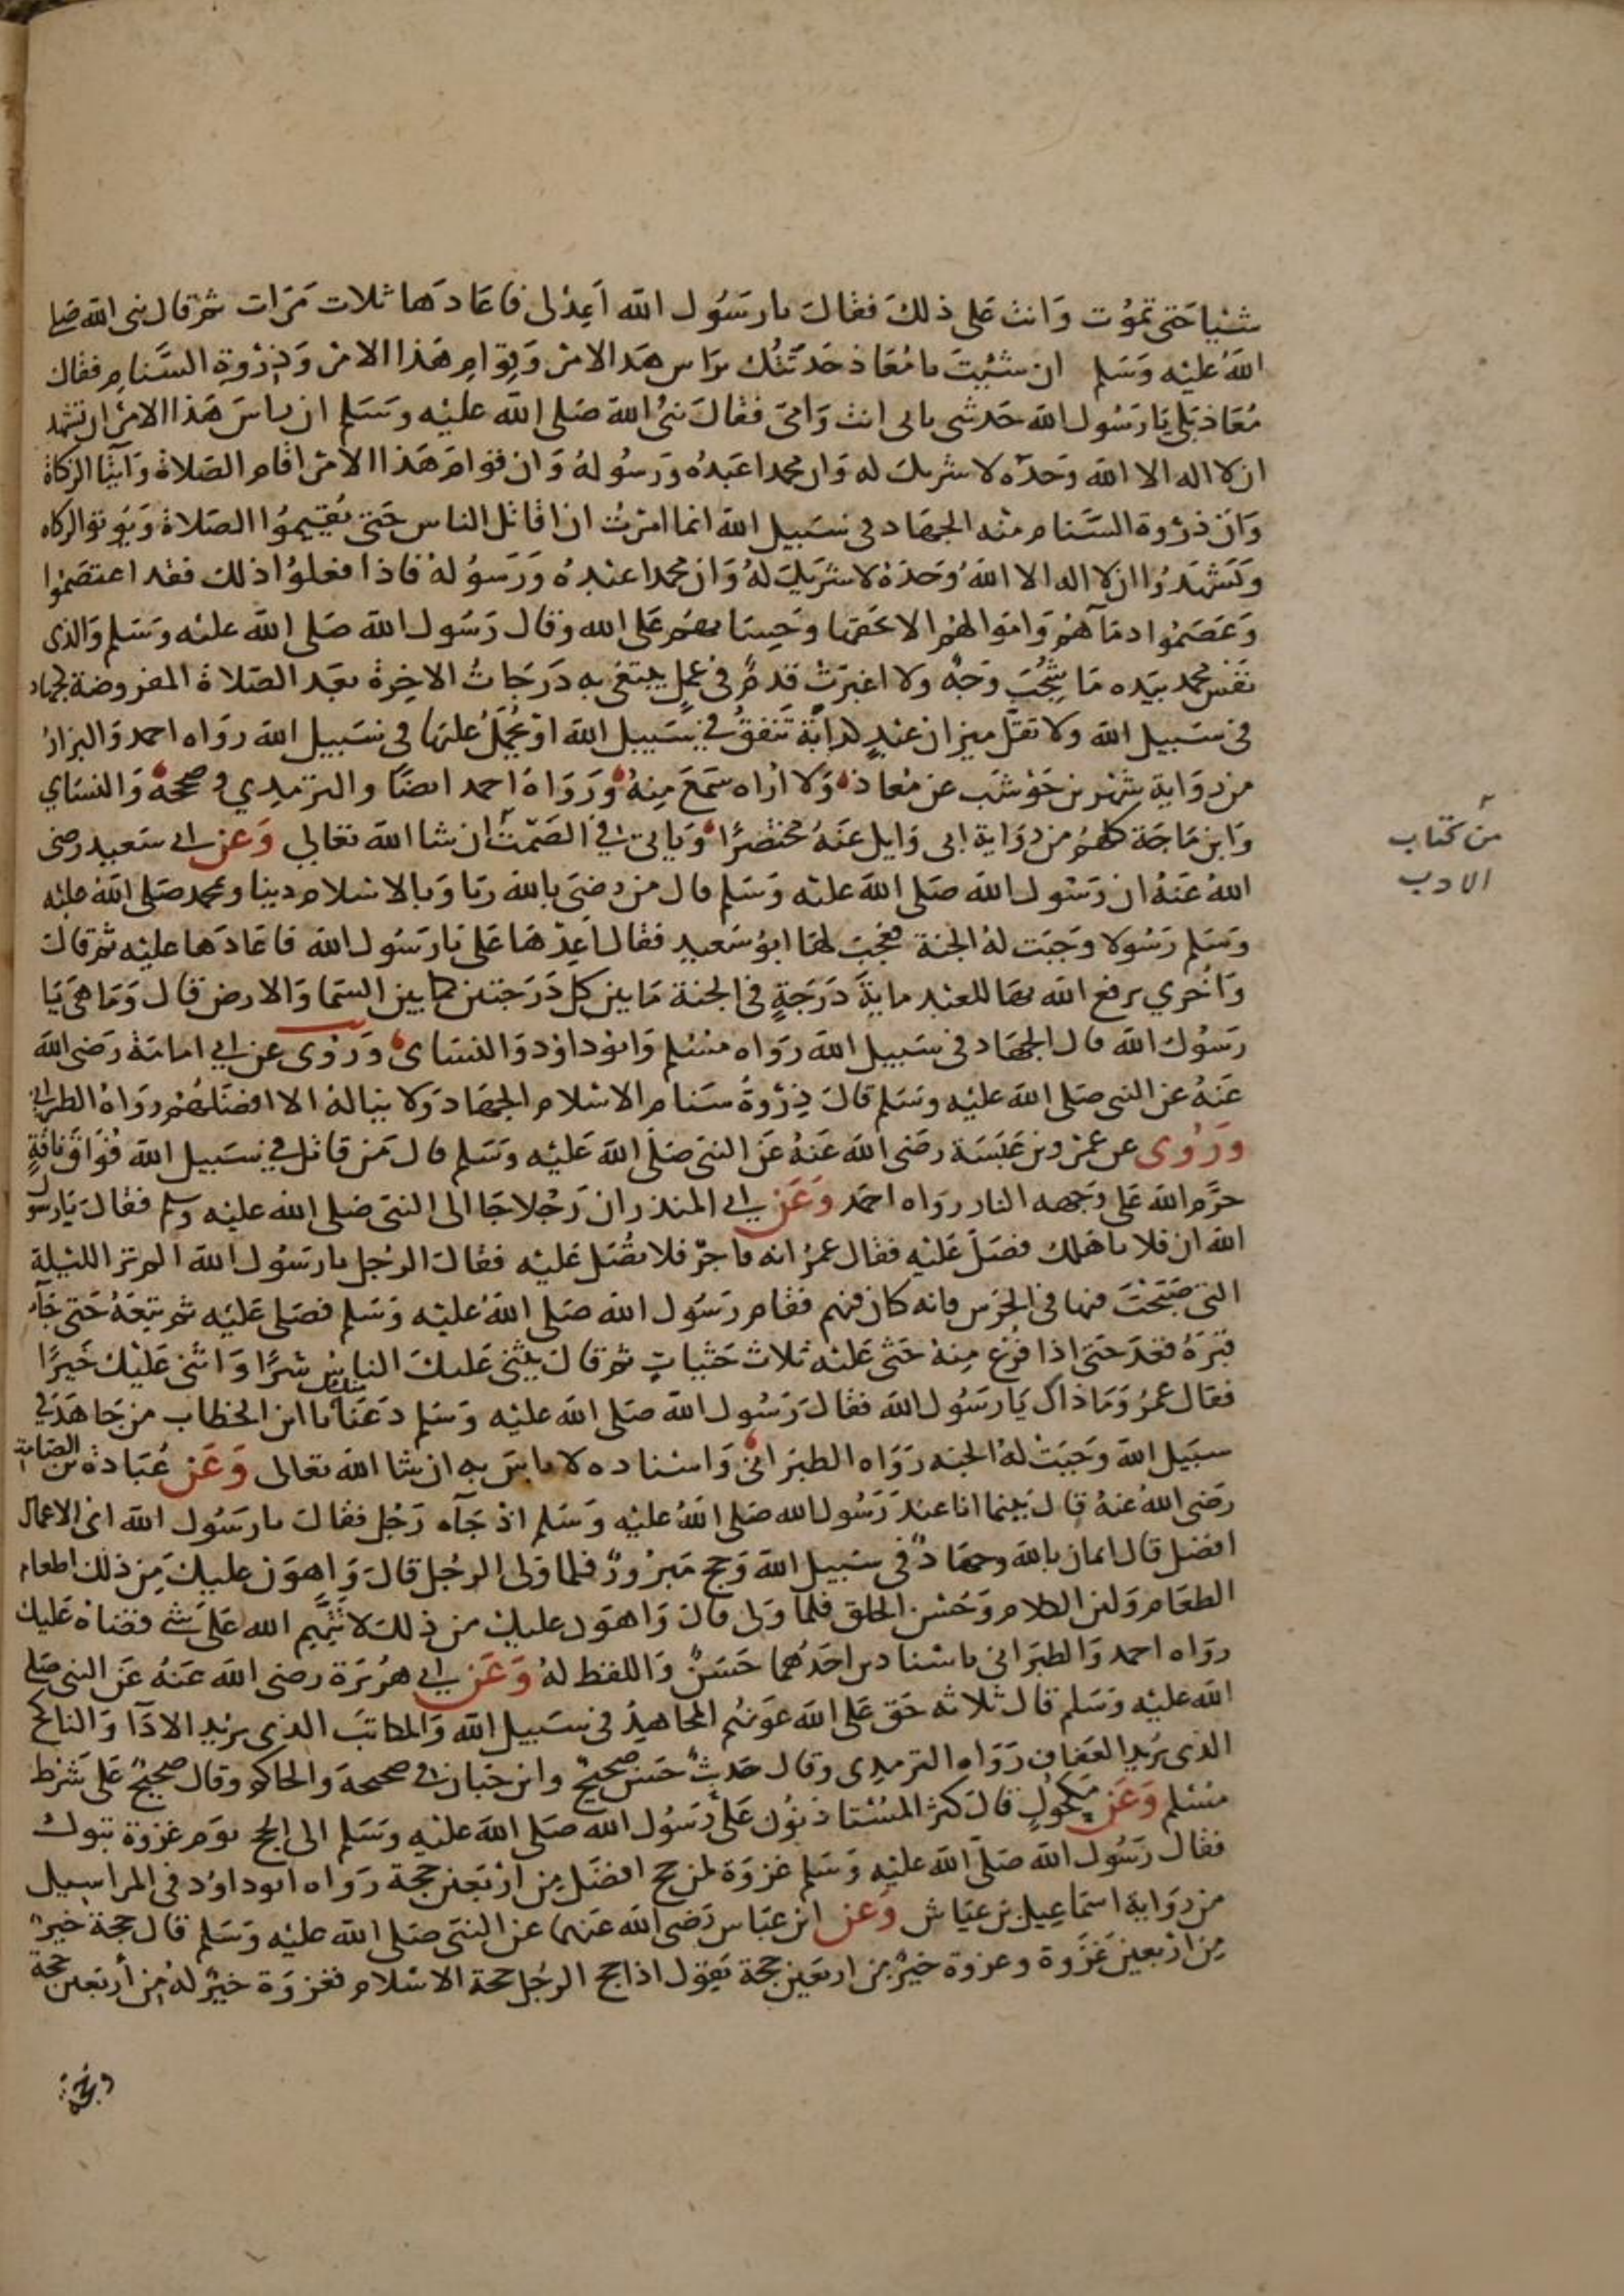 شئيا حَتى تموُت وَانت عَلى ذلكَ فقالَ يارسَوُل الله اَعِدْ لى فاعَادَهَا ثلاث مَرَات ثمَّ قال نبى الله صَلى
اللهُ عَليْه وَسَلم ان شئتَ يا مُعَاذ حَدثتك برَاس هَذا الامر وَقِوَامِ هَذا الامرْ وَذِرْوةِ السَّنامِ فقالَ
مُعَاذ بَلى يَا رَسُول الله حَدثنى بابى انت وَامّى فقالَ نبىُ الله صَلى الله عليْه وسَلم ان راسَ هَذا الامْر ان تشهد
ان لا اله الا الله وَحدَه لا شريك له وَان محمدا عَبدُه وَرسُولهُ وَان قوامَ هَذا الامْر اقام الصَلاة وَايتا الزكاة
وَان ذرْوة السَّنام منه الجهَاد فى سَبيل الله انما امرْتُ ان اقاتل الناس حَتى يُقيمُوا الصَلاة وَيُوتوا الزكاه
وَيَشهَدُوا ان لا اله الا اللهُ وَحدَهُ لا شريكَ لهُ وَان محمدا عبْدهُ وَرَسوُلهُ فاذا فعلوُا ذلك فقد اعتصَمُوا
وَعَصَمُوا دمَآهمْ وَاموَالهمُ الا بحَقها وَحِسَابهمْ عَلى الله وقال رَسُول الله صَلى الله عليْه وسَلم وَالذى
نفس محمد بيَده مَا شحُبَ وَجهٌ ولا اغبرَتْ قدمٌ فى عملٍ يبتغى به دَرَجَاتُ الاخِرةَ بعَد الصَلاة المفروضة كجهاد
فى سَبيل الله ولا ثقل ميزان عَبدٍ كدابّة تنفقُ فى سَبيل الله اوْ يحُمَلُ عليهَا فى سَبيل الله روَاه احمد وَالبزارُ
من رِوَاية شهْر بن حَوْشب عن معُاذ وَلا ارُاه سَمعَ مِنهُ وَرَوَاهُ احمد ايضًا والترمِدي وصححهُ وَالنسَاي
وَابن مَاجَة كلهمُ من روَاية ابى وَايل عَنهُ مختصرًا وَياتى فى الصَمت ان شا الله تعَالي وَعن ابى سَعيد رضى
اللهُ عَنهُ ان رَسُول الله صَلى الله عليْه وسَلم قال من رضىَ بالله ربّا وَبالاسْلام دينا وبمحمد صَلى اللهُ عليْه
وَسَلم رَسُولا وَجَبَت لهُ الجنة فعَجبَ لها ابوُ سَعيد فقالَ اعِدْهَا عَلى يَا رَسُول الله فاعَادَهَا عليْه ثمَّ قالَ
وَاخُري يرفع الله بهَا للعَبْد مايةَ دَرَجَةٍ فى الجنة مَا بين كل دَرَجتين كما بين السَمَا وَالارض قالَ وَمَا هىَ يَا
رَسُول الله قال الجهَاد فى سَبيل الله روَاه مسْلم وَابوُ داوُد وَالنسَاى وَرُوى عن ابى امامَة رَضى الله
عَنهُ عن النبى صَلى الله عليْه وسَلم قالَ ذِرْوةُ سَنام الاسْلام الجهَاد وَلا ينَالهُ الا افضَلهُمْ روَاهُ الطبرانى
ورُوى عن عمْرو بن عَبَسَة رضى الله عَنهُ عَن النبى صَلى الله عَليْه وَسَلم قالَ مَن قاتل فى سَبيل الله فوَاقَ ناقةٍ
حرَّم الله عَلى وَجهه النار روَاه احمَد وَعَن ابى المنذر ان رَجُلا جَا الى النبى صَلى الله عليْه وسَلم فقالَ يَا رسُول
الله ان فلانا هَلك فصَلّ عَليْه فقال عمُر انه فاجرٌ فلا تصُل عَليْه فقالَ الرجُل يا رَسُول الله المْ ترَ الليْلة
التى صَبَحْتَ فيها فى الحرَس فانه كانَ فيهم فقام رَسُول الله صَلى اللهُ عليْه وَسَلم فصَلى عَليْه ثمَّ تبعَهُ حَتى جَآءَ
قبَرهُ فقعَد حَتى اذا فرُغ مِنهُ حَثى عَليْه ثلاث حَثيَاتٍ ثمَّ قالَ يثْنى عَليكَ الناسُ شرًا وَاثنى عَليْك خَيرًا
فقال عمُر وَمَا ذاك يَا رَسُول الله فقالَ رَسُول الله صَلى الله عليْه وَسَلم دَعنَا منك يا ابن الخطاب من جَاهَد فى
سبَيل الله وَجَبَتْ لهُ الجنه رَوَاه الطبَرَانىُ وَاسْناده لا باسَ به ان شا الله تعالى وَعَن عُبَادة بن الصَامت
رضى اللهُ عنهُ قالَ بَينما انا عندَ رَسُول الله صَلى اللهُ عليْه وَسَلم اذ جَآه رَجُل فقالَ يا رَسُول الله اى الاعمال
افضَل قال ايمان بالله وجهَادٌ فى سَبيل الله وَحج مَبرُورٌ فلما وَلى الرجُل قالَ وَاهوَن عليكَ مِن ذلكَ اطعام
الطعَام وَلين الكلام وَحسْن الخلق فلما وَلى قالَ وَاهوَن عليك من ذلكَ لا تتَّهم الله عَلى شَى قضاهُ عَليك
روَاه احمد وَالطبرَانى باسْنادين احَدُهما حَسَنٌ وَاللفظ لهُ وَعَن ابى هرُيرَة رضى الله عَنهُ عَن النبى صَلى
الله عليْه وَسَلم قال ثلاثه حَق عَلى الله عَونهُم المجَاهدُ فى سَبيل الله وَالمكاتبَ الذى يريْد الادَا وَالناكح
الذى يُريد العَفاف رَوَاه الترمدى وقالَ حَديثٌ حَسن صحيحٌ وابن حَبان فى صحيحه وَالحاكم وقالَ صحيحٌ عَلى شَرْط
مسْلم وَعَن مَكحولٍ قالَ كثر المسُتاذنوُن عَلى رَسُول الله صَلى الله عليْه وسَلم الى الحج يوَم غزوة تبوك
فقالَ رَسُول الله صَلى الله عليْه وَسَلم غزوَة لمن حج افضَل مِن ارْبَعين حَجة رَواه ابوُ داوُد فى المراسيل
من روَاية اسمَاعِيل بن عيَاش وَعن ابن عبَاس رَضى الله عَنهما عن النبى صَلى الله عليْه وَسَلم قالَ حجة خيرٌ
مِن ارْبعين غَزَوة وغزوة خيْرٌ من اربَعين حَجة يَقوُل اذا حج الرجُل حجة الاسْلام فغزوَة خيرٌ لهُ مِن أربَعين حجة
وحجة
من كتاب
الادب